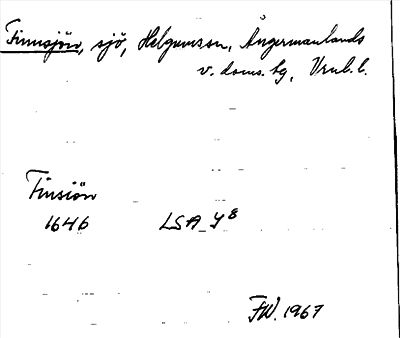 Finnsjön, sjö, Helgumssn, Ångermanlands
v. doms. tg, Vrnl. l.
Finsiön
1646 LSA Y8
FW. 1967